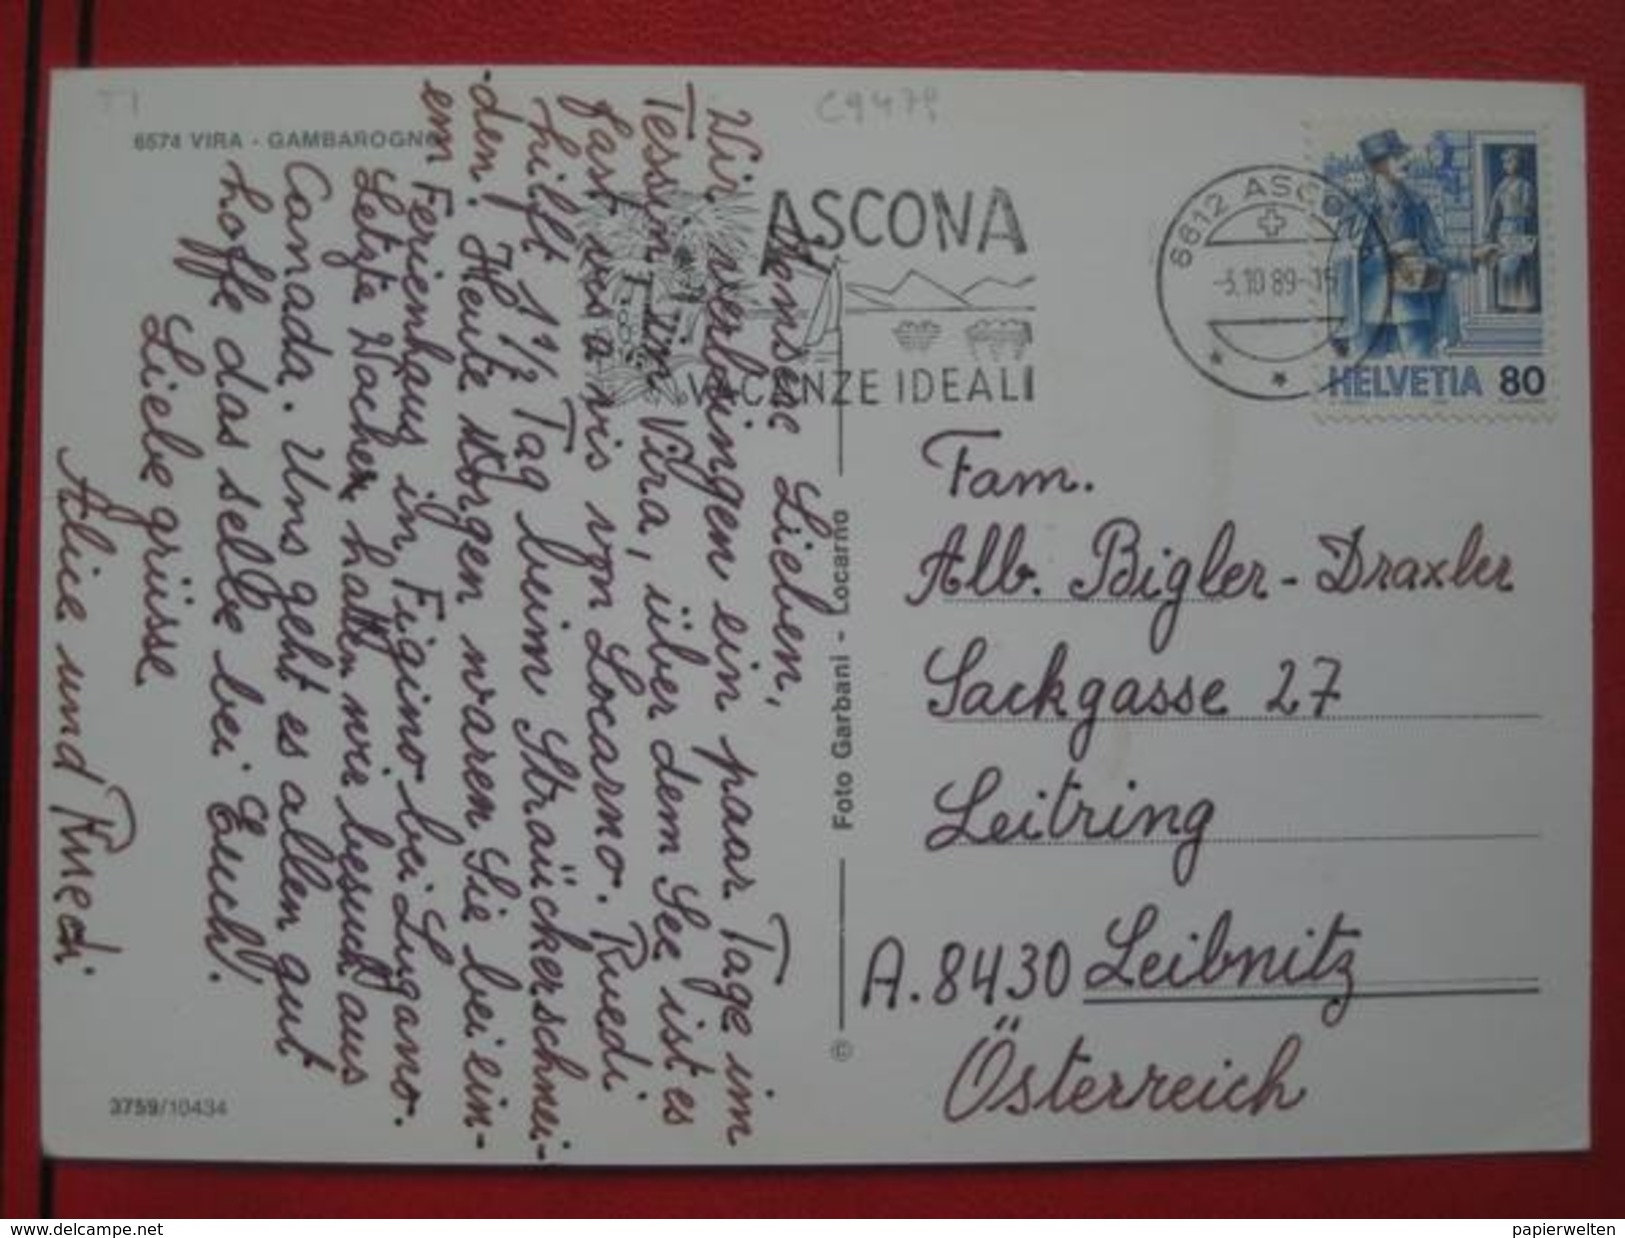 T1
C9478
6574 VIRA - GAMBAROGNO
Meine Lieben,
Wir verbringen ein paar Tage im
Tessin in Vira, über dem See ist es
fast vis a vis von Locarno. Ruedi
hilft 1 1/2 Tag beim Sträuckerschnei-
den. Heute Morgen waren Sie bei ein-
em Ferienhaus in Figino bei Lugano.
Letzte Wochen hatten wir besuch aus
Canada. Uns geht es allen gut
hoffe das selbe bei Euch.
Liebe grüsse
Alice und Ruedi
3759/10434
© Foto Garbani - Locarno
ASCONA
VACANZE IDEALI
6612 ASCONA
-5.10 89-15
HELVETIA 80
Fam.
Alb. Bigler-Draxler
Sackgasse 27
Leitring
A. 8430 Leibnitz
Österreich
www.delcampe.net
papierwelten